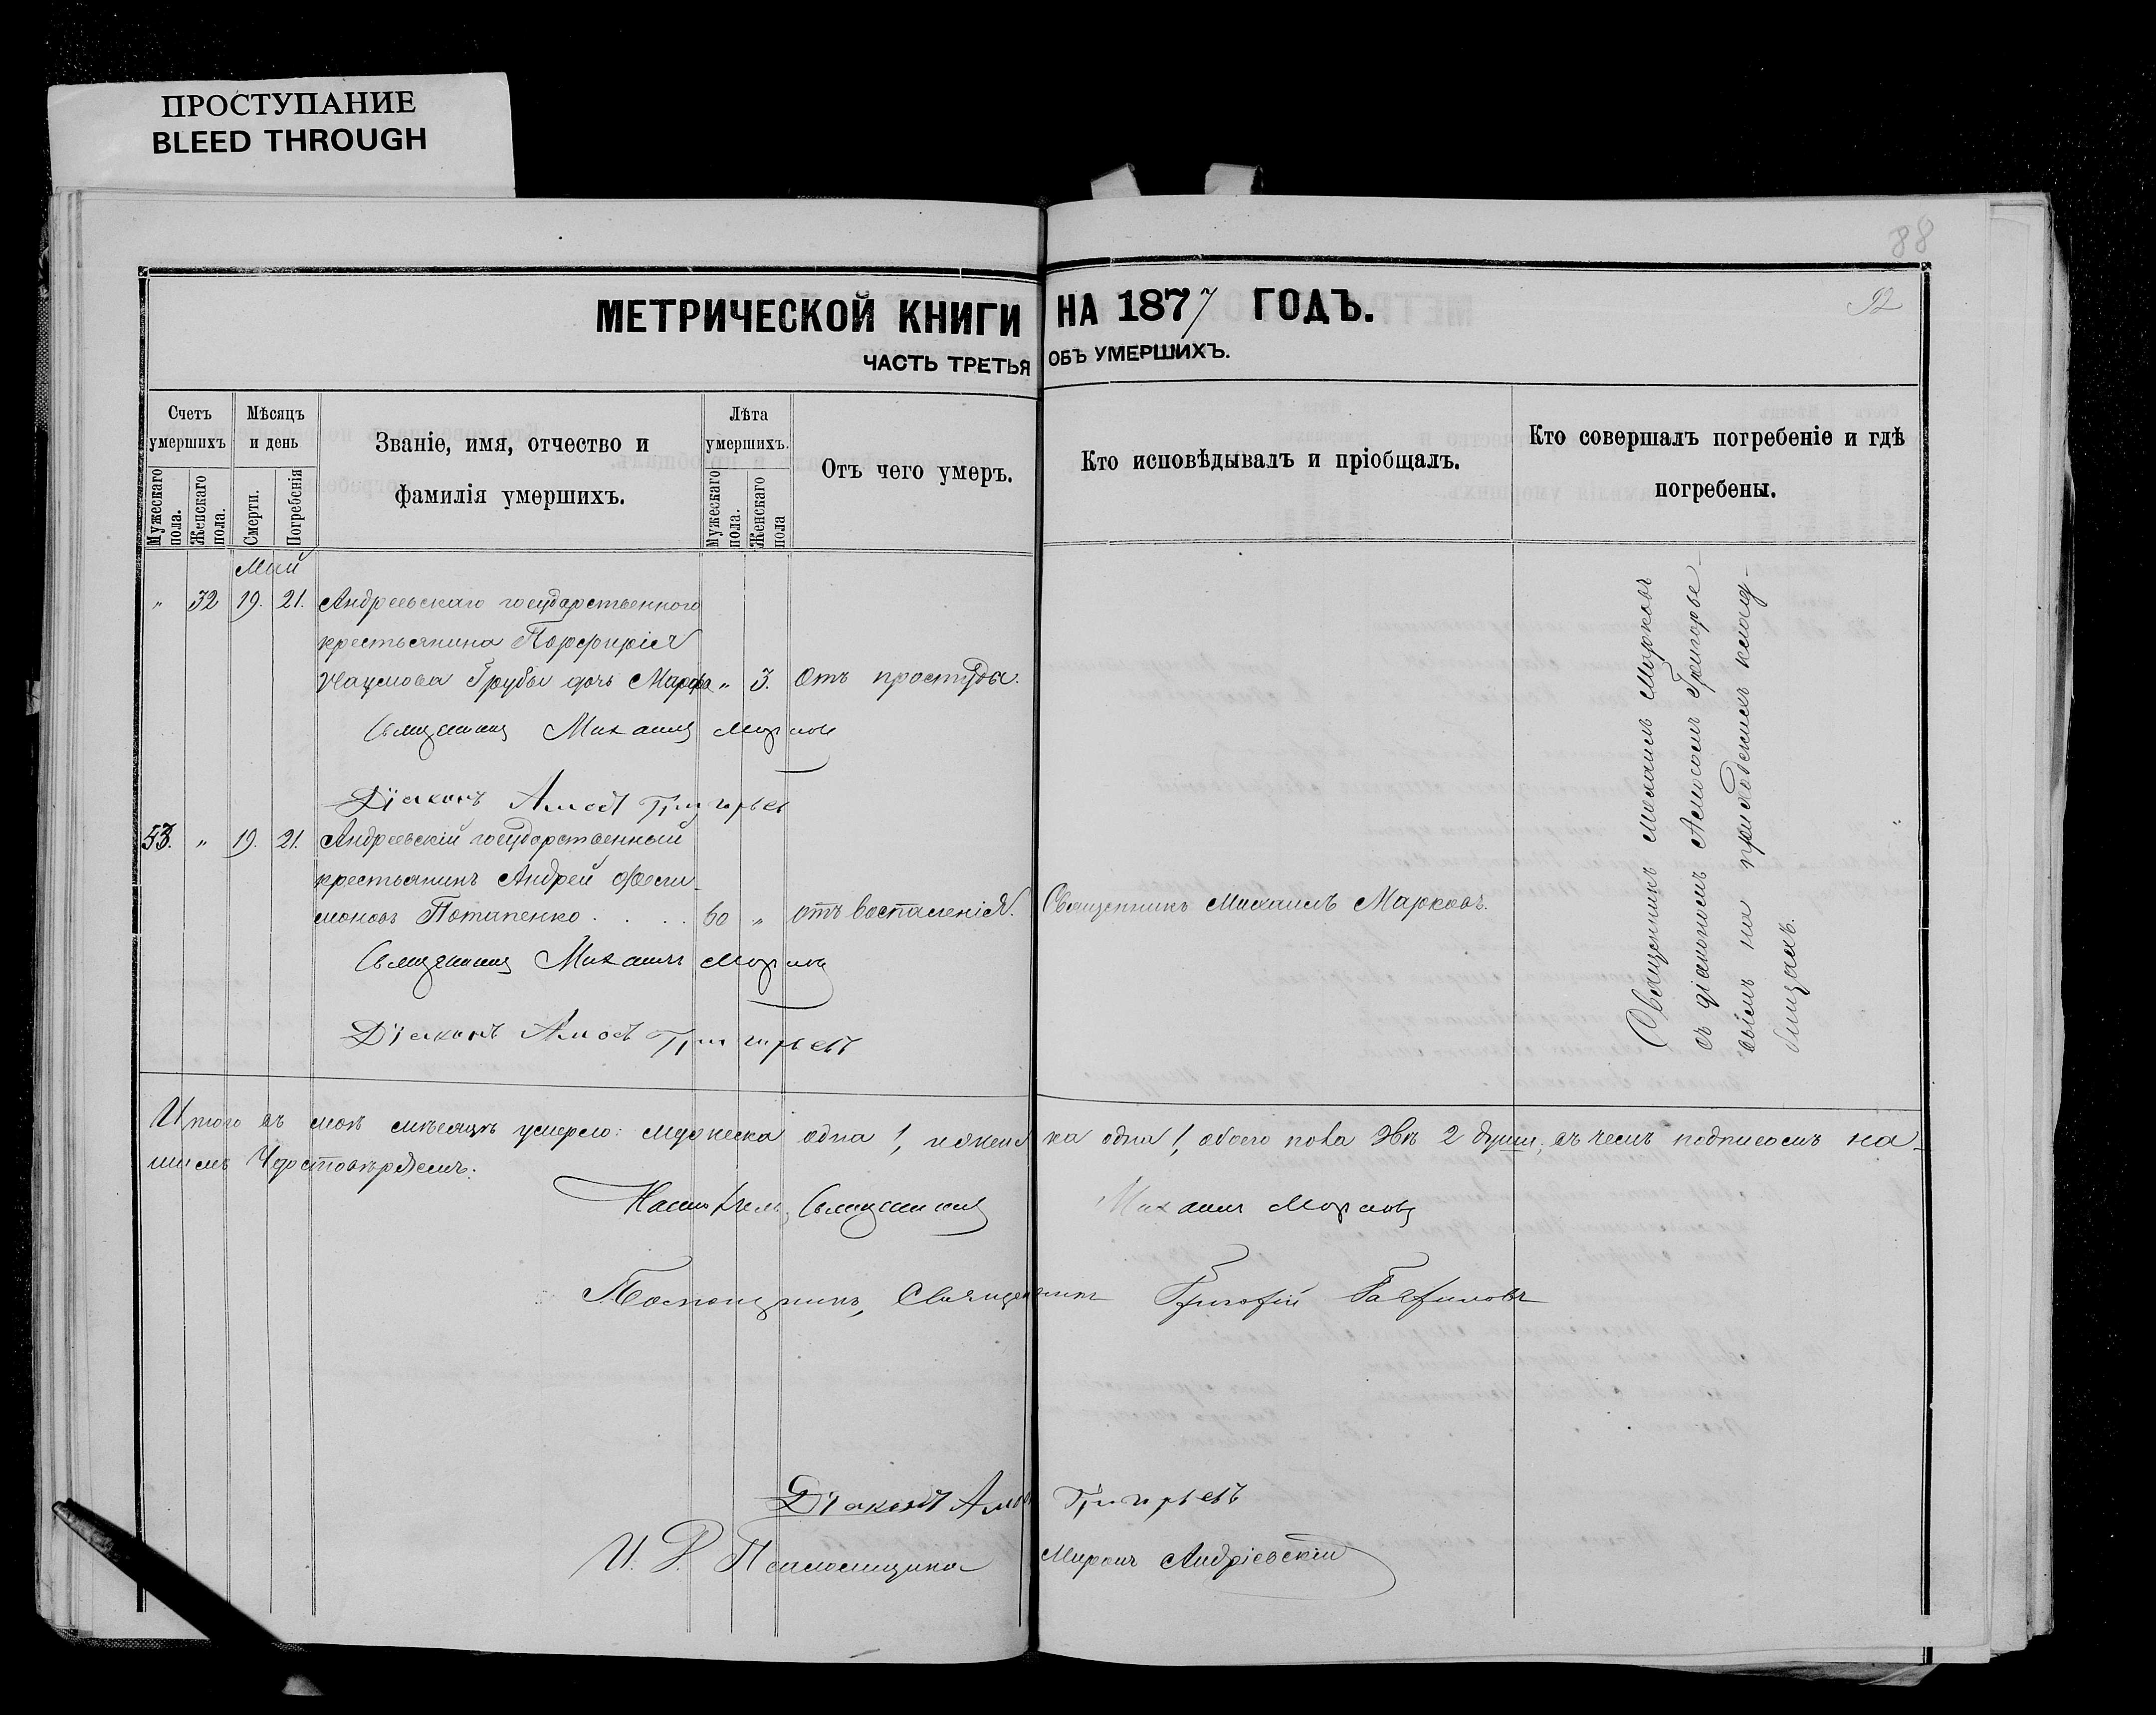 ПРОСТУПАНИЕ
BLEED THROUGH
88
92
МЕТРИЧЕСКОЙ КНИГИ НА 1877 ГОДЪ.
ЧАСТЬ ТРЕТЬЯ ОБЪ УМЕРШИХЪ.
Счетъ умершихъ
Мужескаго пола.
Женскаго пола.
Мѣсяцъ и день
Смерти.
Погребенія
Званіе, имя, отчество и
фамилія умершихъ.
Лѣта умершихъ.
Мужескаго пола.
Женскаго пола
Отъ чего умеръ.
Кто исповѣдывалъ и пріобщалъ.
Кто совершалъ погребеніе и гдѣ
погребены.
Май
" 32 19. 21. Андреевскаго государственного
крестьянина Порфирія
Наумова Грубы дочь Марфа " 3. Отъ простуды.
Священникъ Михаилъ Марковъ
Діаконъ Амосъ Григорьевъ
53. " 19. 21. Андреевскій государственный
крестьянинъ Андрей
Потапенко . . . . 60 " отъ воспаленія. Священникъ Михаилъ Марковъ.
Священникъ Михаилъ Марковъ
Діаконъ Амосъ Григорьевъ
Священникъ Михаилъ Марковъ
съ діакономъ Амосомъ Григорье-
вымъ на приходскихъ клад-
бищахъ.
Итого въ маѣ мѣсяцѣ умерло: мужеска одна 1, женска одна 1, обоего пола 2 души, въ чемъ подписомъ на-
шимъ удостовѣряемъ.
Настоятель, Священникъ Михаилъ Марковъ
Помощникъ, Священникъ Григорій
Діаконъ Амосъ Григорьевъ
И. Д. Псаломщика Миронъ Андріевскій